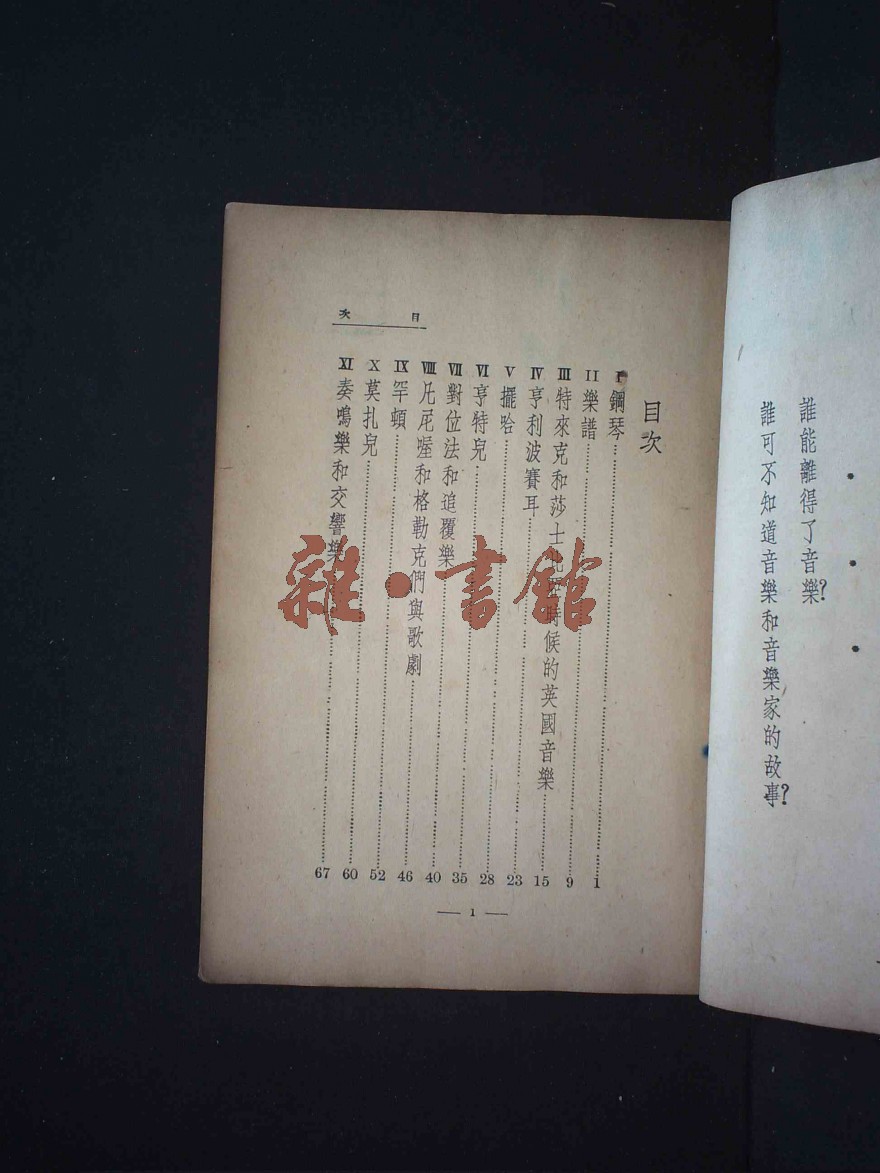 誰能離得了音樂?
誰可不知道音樂和音樂家的故事?
目次
目次
I 鋼琴 1
II 樂譜 9
III 特來克和莎士比亞時候的英國音樂 15
IV 亨利波賽耳 23
V 擺哈 28
VI 亨特兒 35
VII 對位法和追覆樂 40
VIII 和格勒克們與歌劇 46
IX 罕頓 52
X 莫扎兒 60
XI 奏鳴樂和交響樂 67
— 1 —
雜·書館